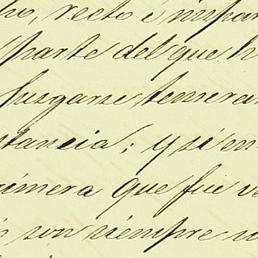 ho, recto é impar
parte del que h
juzgarse temera
stancia; y si en
rimera que fue v
son siempre